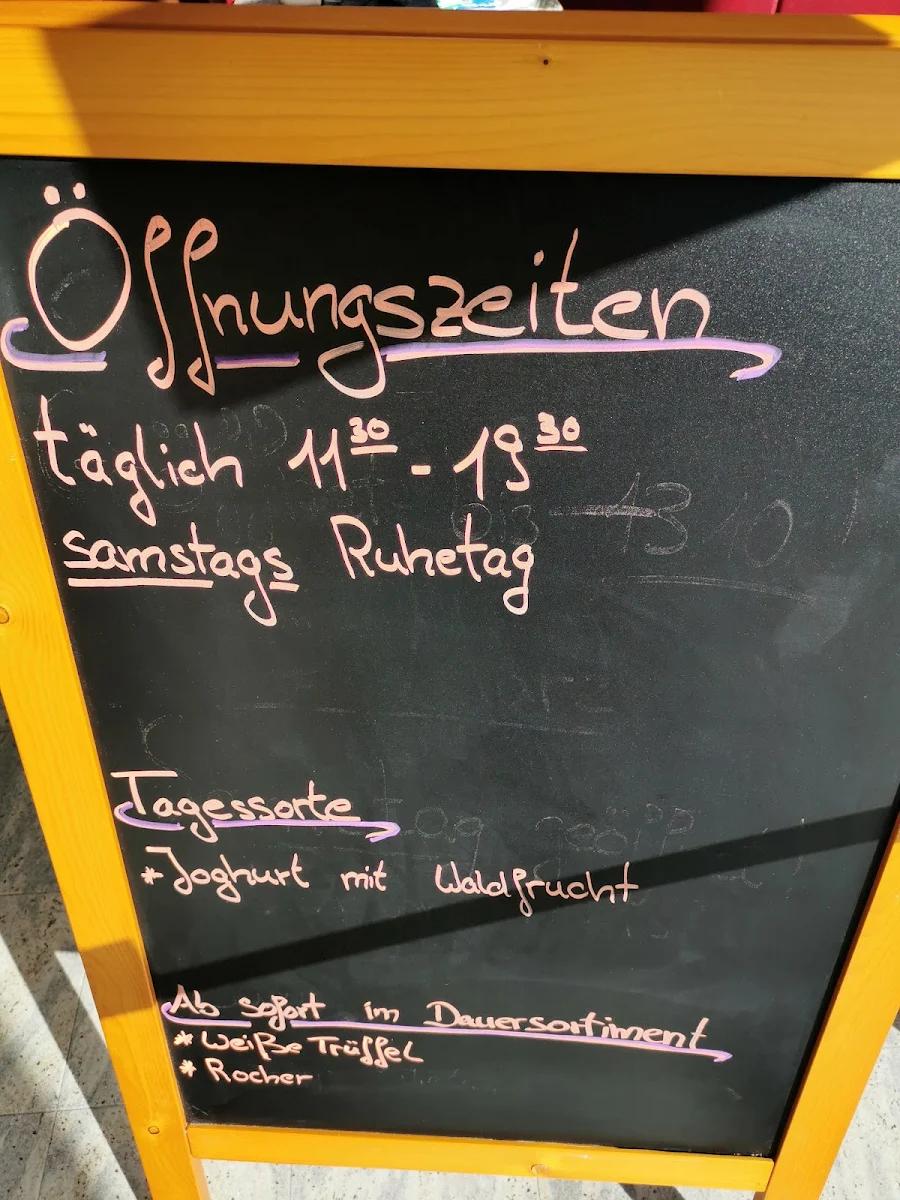 Öffnungszeiten
täglich 11³⁰ - 19³⁰
samstags Ruhetag
Tagessorte
* Joghurt mit Waldfrucht
Ab sofort im Dauersortiment
* Weiße Trüffel
* Rocher